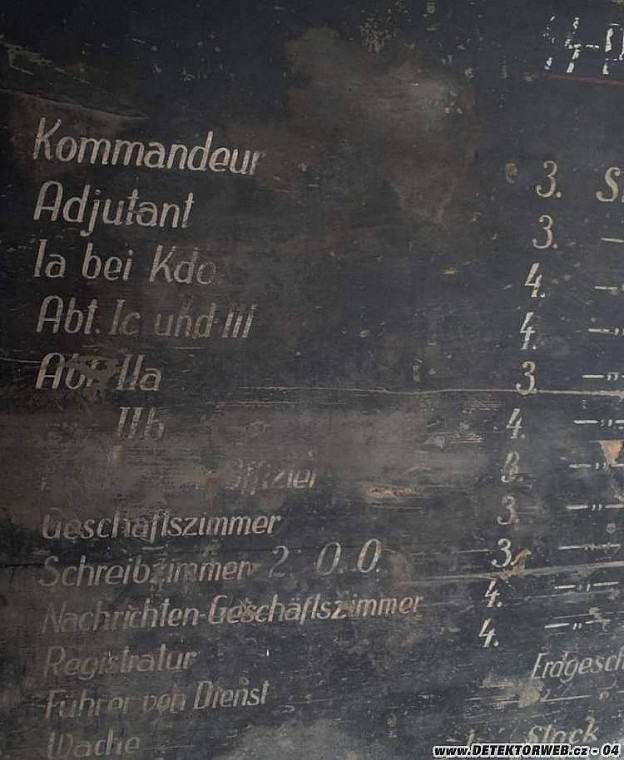 Kommandeur 3. S.
Adjutant 3. —
Ia bei Kdo 4. —"
Abt. Ic und III 4. —"
Abt. IIa 3. —"—
IIb 4. —"—
Offizier 3. —"—
Geschäftszimmer 3. —"—
Schreibzimmer 2. O.O. 3. —"
Nachrichten-Geschäftszimmer 4. —"
Registratur 4. —"
Führer von Dienst Erdgesch
Wache "
Stock
www.DETEKTORWEB.cz - 04